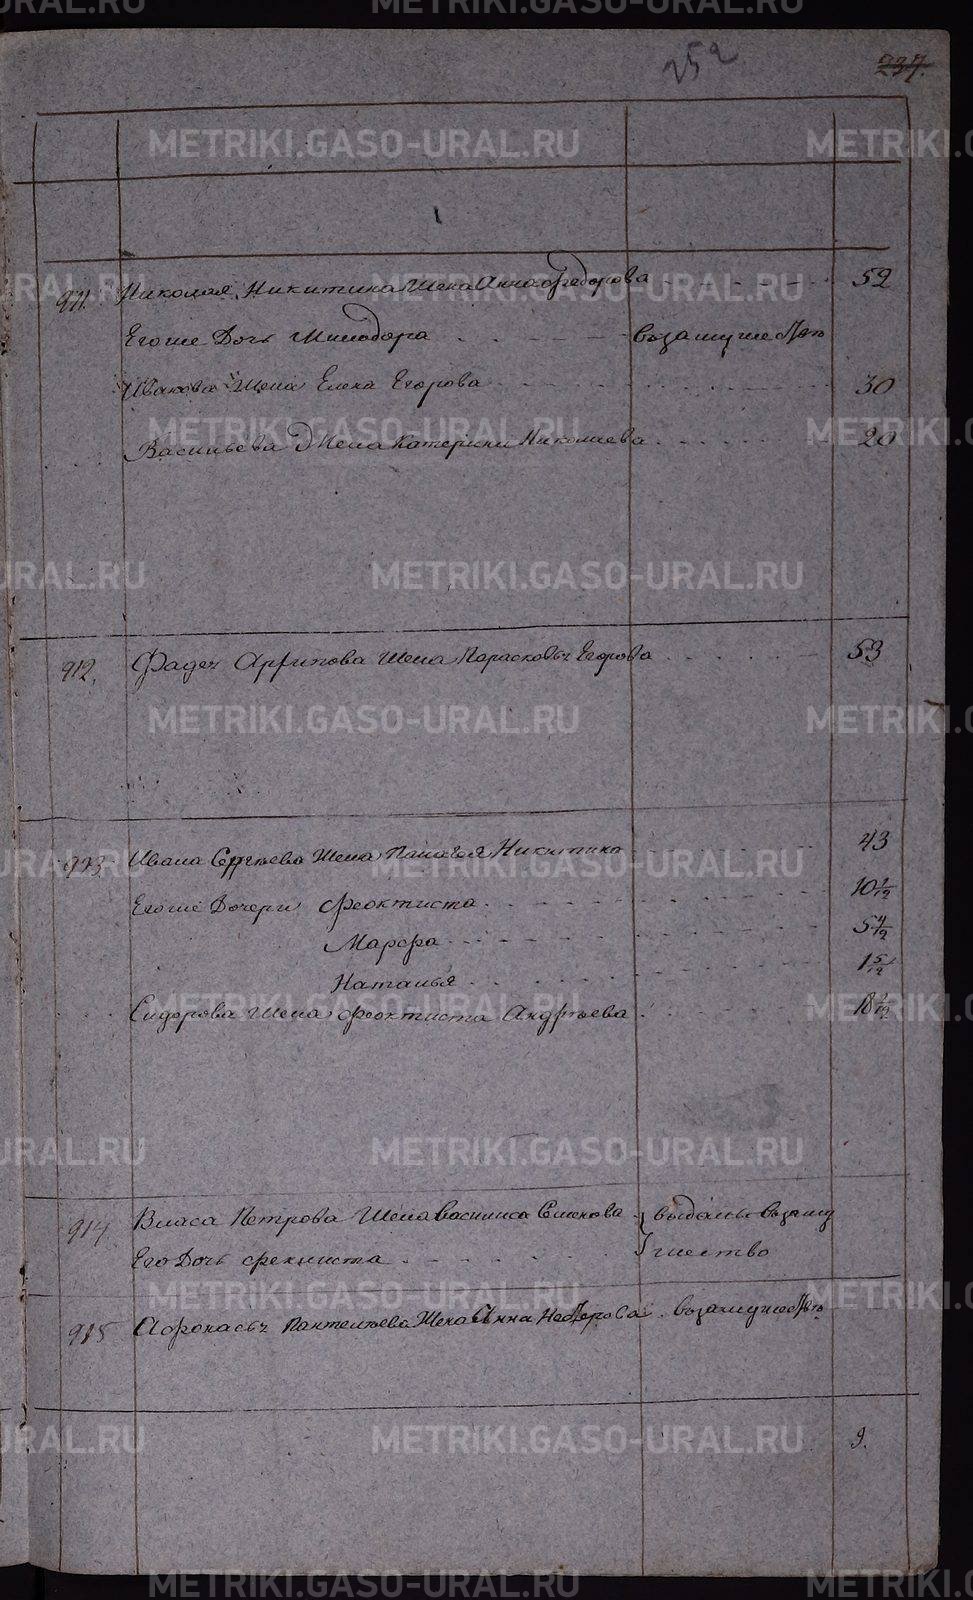 252 237.
911. Николая Никитина Жена Анна Федорова 52
Егоже Дочь Минодора взамужестве
Ивана Жена Елена Егорова 30
Васильева Жена Катерина Николаева 20
912. Фадея Архипова Жена Парасковья Егорова 53
913. Ивана Сергеева Жена Палагея Никитина 43
Егоже Дочери Феоктиста 10 1/12
Марфа 5 4/12
Наталья 1 5/12
Сидорова Жена Феоктиста Андреева 18 1/12
914. Власа Петрова Жена Василиса Семенова } выданы взаму
Его Дочь Фекниста } жество
915 Афонасья Пантелеева Жена Анна Нестерова взамужестве
9.
METRIKI.GASO-URAL.RU